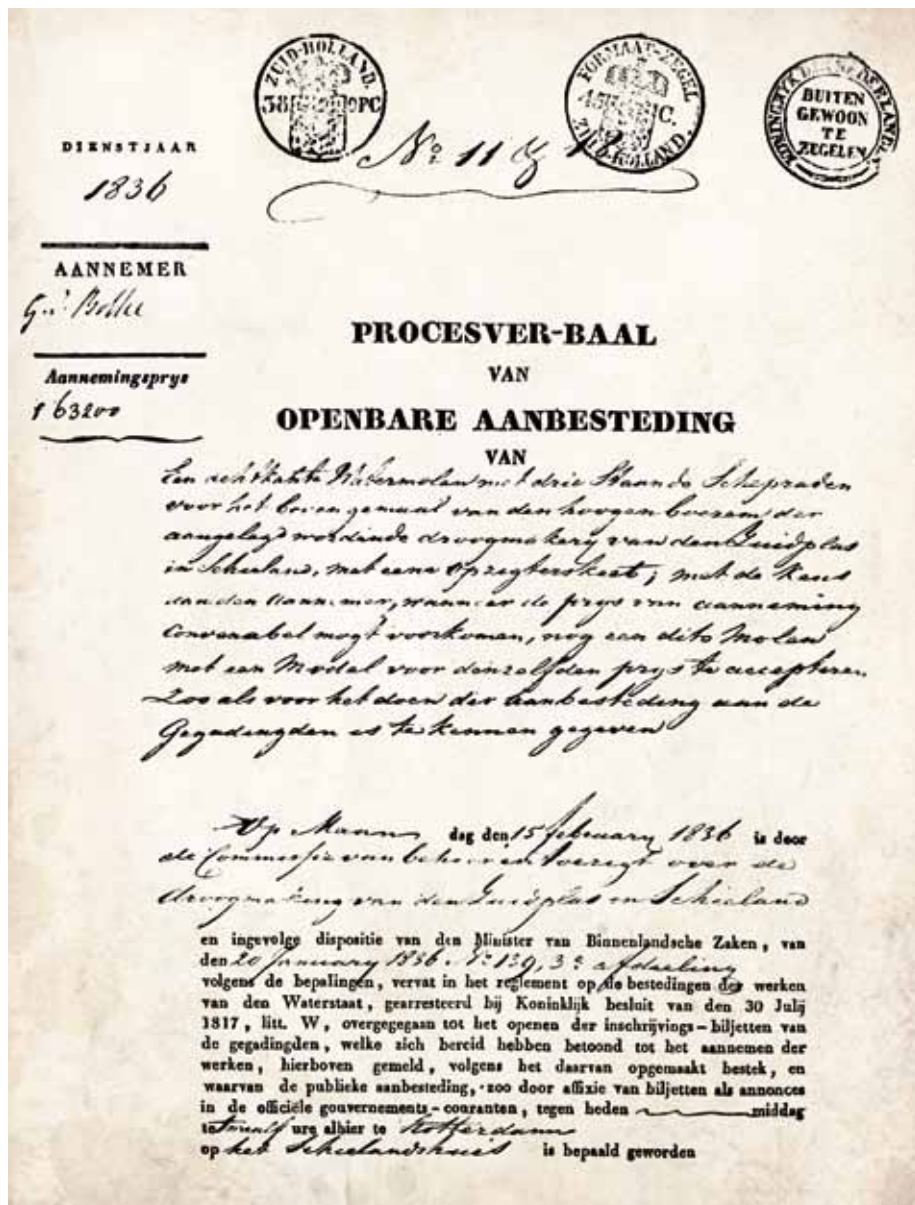 ZUID-HOLLAND.
38 PC
FORMAAT-ZEGEL
45 C.
ZUID-HOLLAND.
KONINGRYK DER NEDERLANDEN
BUITEN
GEWOON
TE
ZEGELEN
No 11 & 12
DIENSTJAAR
1836
AANNEMER
Gt. Bolke
Aannemingsprys
f 63200
PROCESVER-BAAL
VAN
OPENBARE AANBESTEDING
VAN
Een achtkante Watermolen met drie Staande Schepraden
voor het boven gemaal van den hoogen boezem der
aangelegd wordende droogmakery van den Zuidplas
in Schieland, met eene opzigterskeet; met de keus
aan den Aannemer, wanneer de prys van aanneming
Convenabel mogt voorkomen, nog een dito Molen
met een Model voor denzelfden prys te accepteren
Zoo als voor het doen der aanbesteding aan de
Gegadingden is te kennen gegeven
Op Maan dag den 15 february 1836 is door
de Commissie van beheer en toezigt over de
droogmaking van den Zuidplas in Schieland
en ingevolge dispositie van den Minister van Binnenlandsche Zaken, van
den 20 January 1836 No 139, 3e afdeeling
volgens de bepalingen, vervat in het reglement op de bestedingen der werken
van den Waterstaat, gearresteerd bij Koninklijk besluit van den 30 Julij
1817, litt. W, overgegaan tot het openen der inschrijvings-biljetten van
de gegadingden, welke zich bereid hebben betoond tot het aannemen der
werken, hierboven gemeld, volgens het daarvan opgemaakt bestek, en
waarvan de publieke aanbesteding, zoo door affixie van biljetten als annonces
in de officiële gouvernements-couranten, tegen heden middag
te twaalf ure alhier te Rotterdam
op het Schielandshuis is bepaald geworden